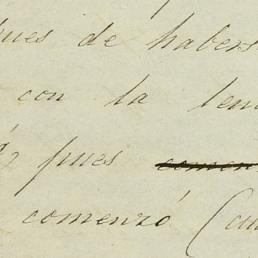 ues de habers
con la len
pues comen
comenzó (au